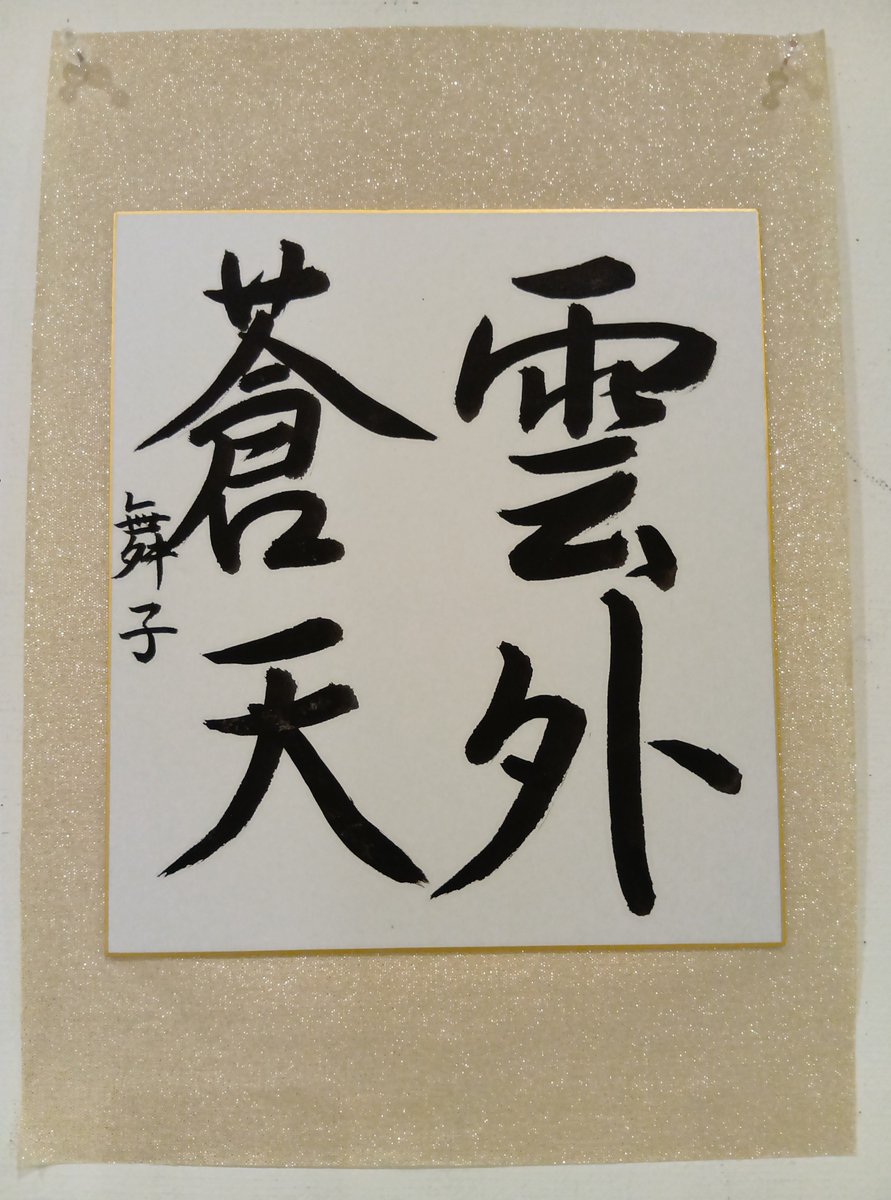 雲外
蒼天
舞子